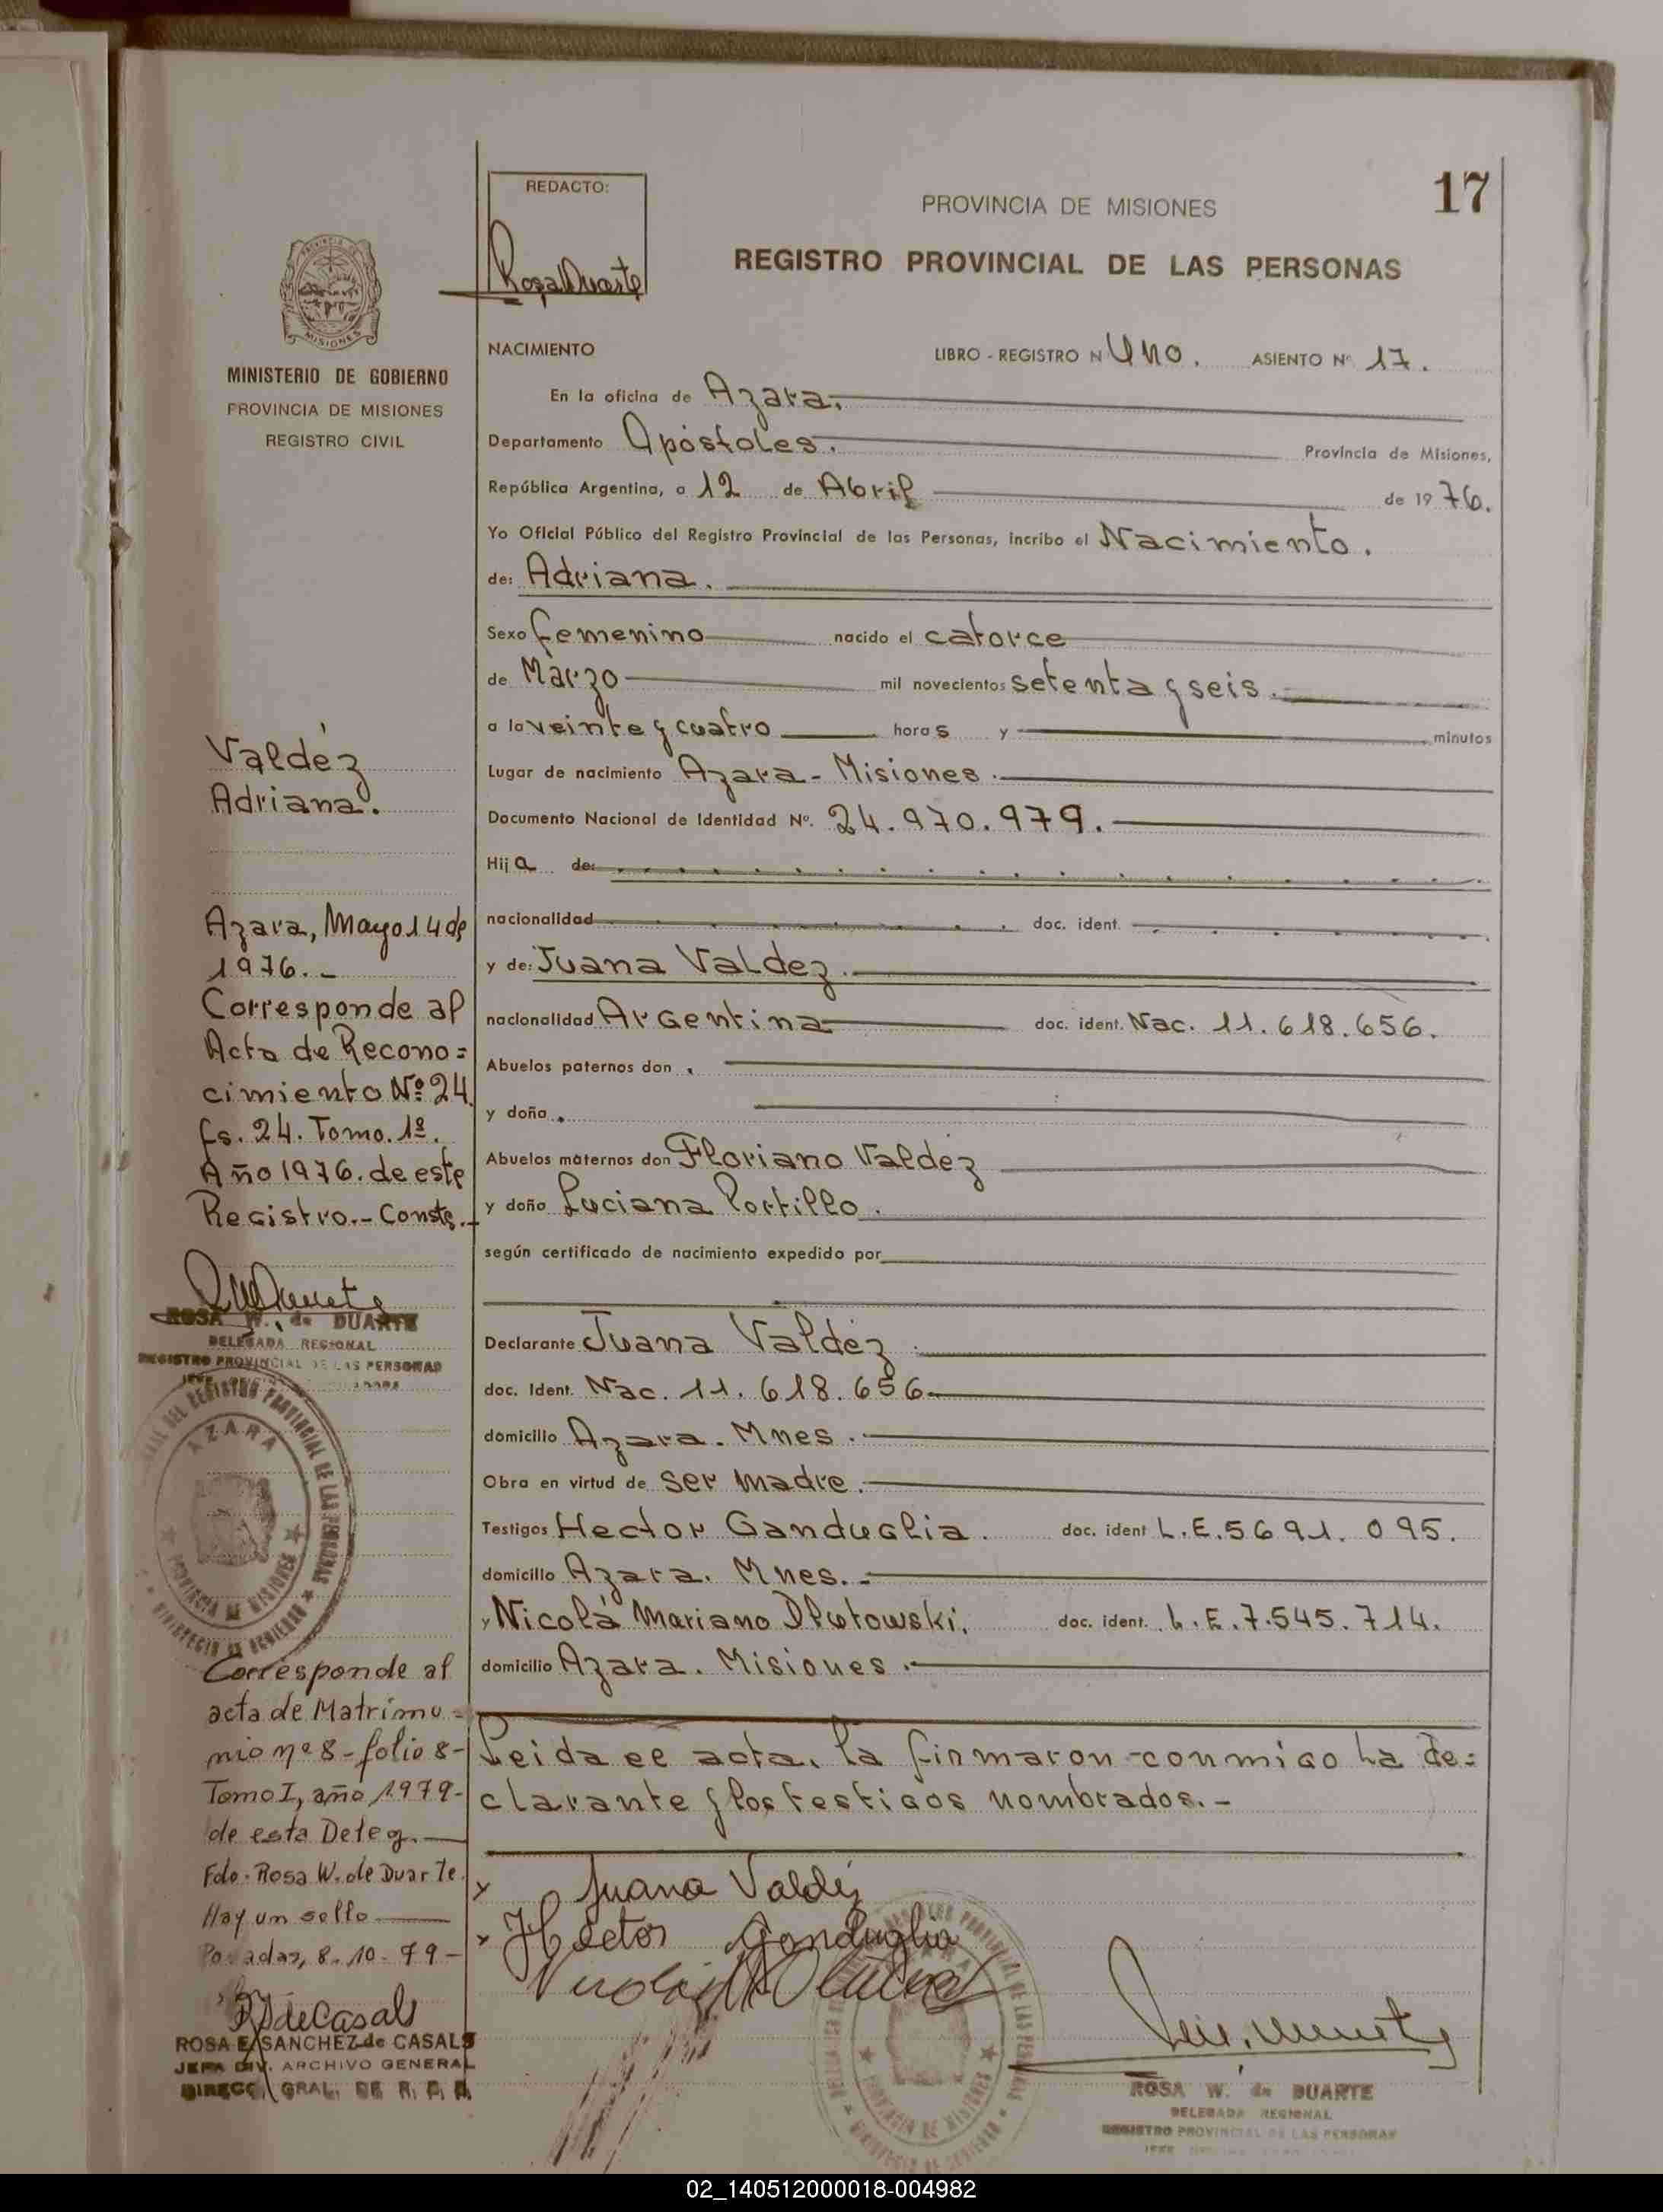 17
REDACTO:
Rosa Duarte
PROVINCIA DE MISIONES
REGISTRO PROVINCIAL DE LAS PERSONAS
MISIONES
MINISTERIO DE GOBIERNO
PROVINCIA DE MISIONES
REGISTRO CIVIL
NACIMIENTO LIBRO - REGISTRO N Uno. ASIENTO Nº 17.
En la oficina de Azara.
Departamento Apóstoles. Provincia de Misiones,
República Argentina, a 12 de Abril de 1976.
Yo Oficial Público del Registro Provincial de las Personas, incribo el Nacimiento.
de: Adriana.
Sexo femenino nacido el catorce
de Màrzo mil novecientos setenta y seis.
a la veinte y cuatro horas y minutos
Lugar de nacimiento Azara - Misiones.
Documento Nacional de Identidad Nº. 24.970.979.
Hija de:
nacionalidad doc. ident.
y de: Juana Valdez.
nacionalidad Argentina doc. ident. Nac. 11.618.656.
Abuelos paternos don
y doña
Abuelos maternos don Floriano Valdéz
y doña Luciana Portillo.
según certificado de nacimiento expedido por
Declarante Juana Valdéz
doc. Ident. Nac. 11.618.656
domicilio Azara. Mnes.
Obra en virtud de ser madre.
Testigos Hector Ganduglia. doc. ident L.E.5691.095.
domicilio Azara. Mnes.
y Nicolá Mariano Dlutowski. doc. ident. L.E.7.545.714.
domicilio Azara. Misiones.
Leida el acta, la firmaron conmigo la de=
clarante y los testigos nombrados.-
Juana Valdéz
Hector Ganduglia
ROSA W. de DUARTE
DELEGADA REGIONAL
REGISTRO PROVINCIAL DE LAS PERSONAS
Valdéz
Adriana.
Azara, Mayo 14 de
1976.-
Corresponde al
Acta de Recono=
cimiento Nº 24.
fs. 24. Tomo. 1º.
Año 1976. de este
Registro.- Conste.-
ROSA W. de DUARTE
DELEGADA REGIONAL
REGISTRO PROVINCIAL DE LAS PERSONAS
DEL REGISTRO PROVINCIAL DE LAS PERSONAS
AZARA
PROVINCIA DE MISIONES
MINISTERIO DE GOBIERNO
Corresponde al
acta de Matrimo-
nio nº 8-folio 8-
Tomo I, año 1979-
de esta Deleg.
Fdo. Rosa W. de Duarte.
Hay un sello
Posadas, 8-10-79-
RSdeCasals
ROSA E. SANCHEZ de CASALS
JEFA DIV. ARCHIVO GENERAL
DIRECC. GRAL. DE R. P. P.
02_140512000018-004982